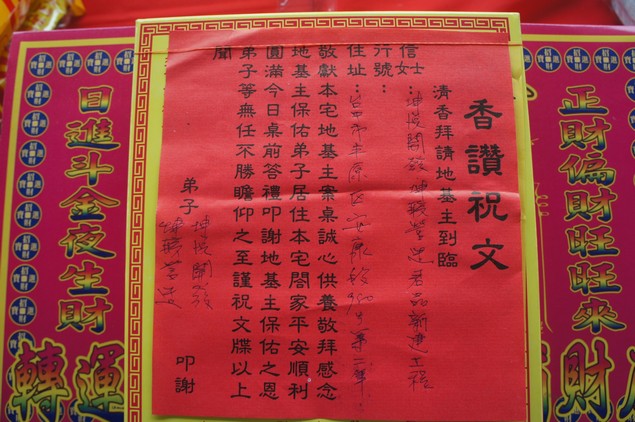 正財偏財旺旺來
財
香讚祝文
清香拜請地基主到臨
信士：坤悅開發 新建工程
行號：
住址：台中市
敬獻本宅地基主案桌誠心供養敬拜感念
地基主保佑弟子居住本宅閤家平安順利
圓滿今日桌前答禮叩謝地基主保佑之恩
弟子等無任不勝瞻仰之至謹祝文牒以上
聞
弟子 坤悅開發 叩謝
日進斗金夜生財
轉運
招財進寶